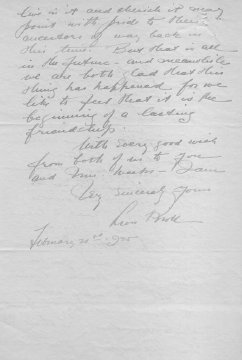 live in it and cherish it may
point with pride to their
ancestors of way back in
this time. But that is all
in the future - and meanwhile
we are both glad that this
thing has happened for we
like to feel that it is the
beginning of a lasting
friendship.
With every good wish
from both of us to you
and Mrs. - I am
Very sincerely yours
February